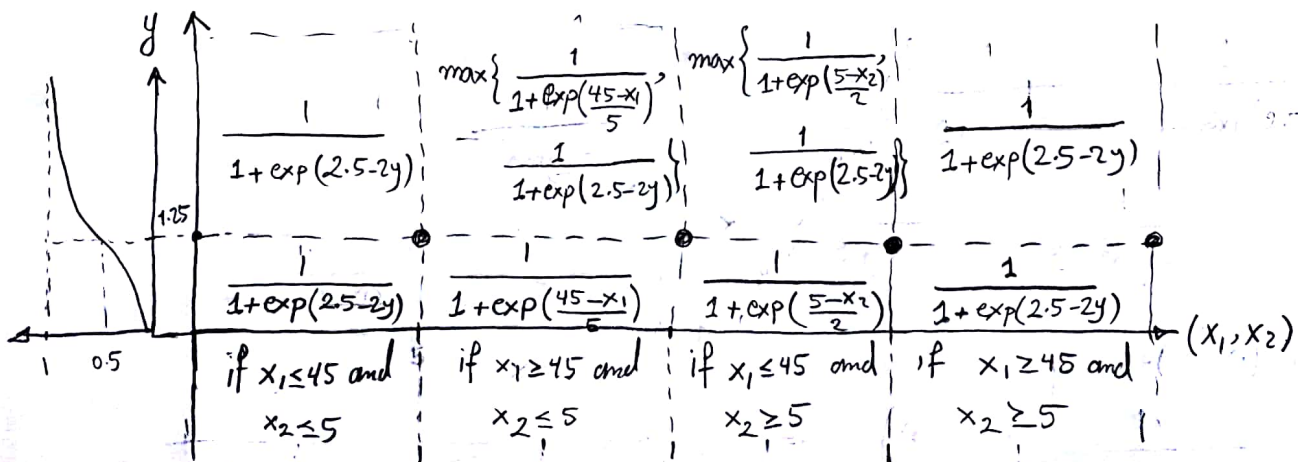 y
1 / (1 + exp(2.5-2y))
max{ 1 / (1 + exp((45-x₁)/5)) ,
1 / (1+exp(2.5-2y)) }
max{ 1 / (1+exp((5-x₂)/2)) ,
1 / (1+exp(2.5-2y)) }
1 / (1+exp(2.5-2y))
1.25
1 / (1+exp(2.5-2y))
1 / (1+exp((45-x₁)/5))
1 / (1+exp((5-x₂)/2))
1 / (1+exp(2.5-2y))
(x₁, x₂)
1
0.5
if x₁≤45 and
x₂≤5
if x₁≥45 and
x₂≤5
if x₁≤45 and
x₂≥5
if x₁≥45 and
x₂≥5